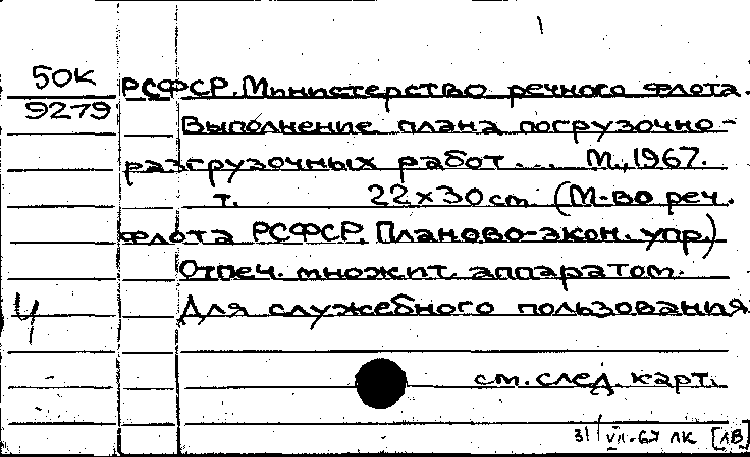 50К РСФСР. Министерство речного флота.
9279 Выполнение плана погрузочно-
разгрузочных работ ... М., 1967.
т. 22×30 cm (М-во реч.
флота РСФСР. Планово-экон. упр.)
Отпеч. множит. аппаратом.
Ч Для служебного пользования
см. след. карт.
31/VII-67 ЛК [ЛВ]